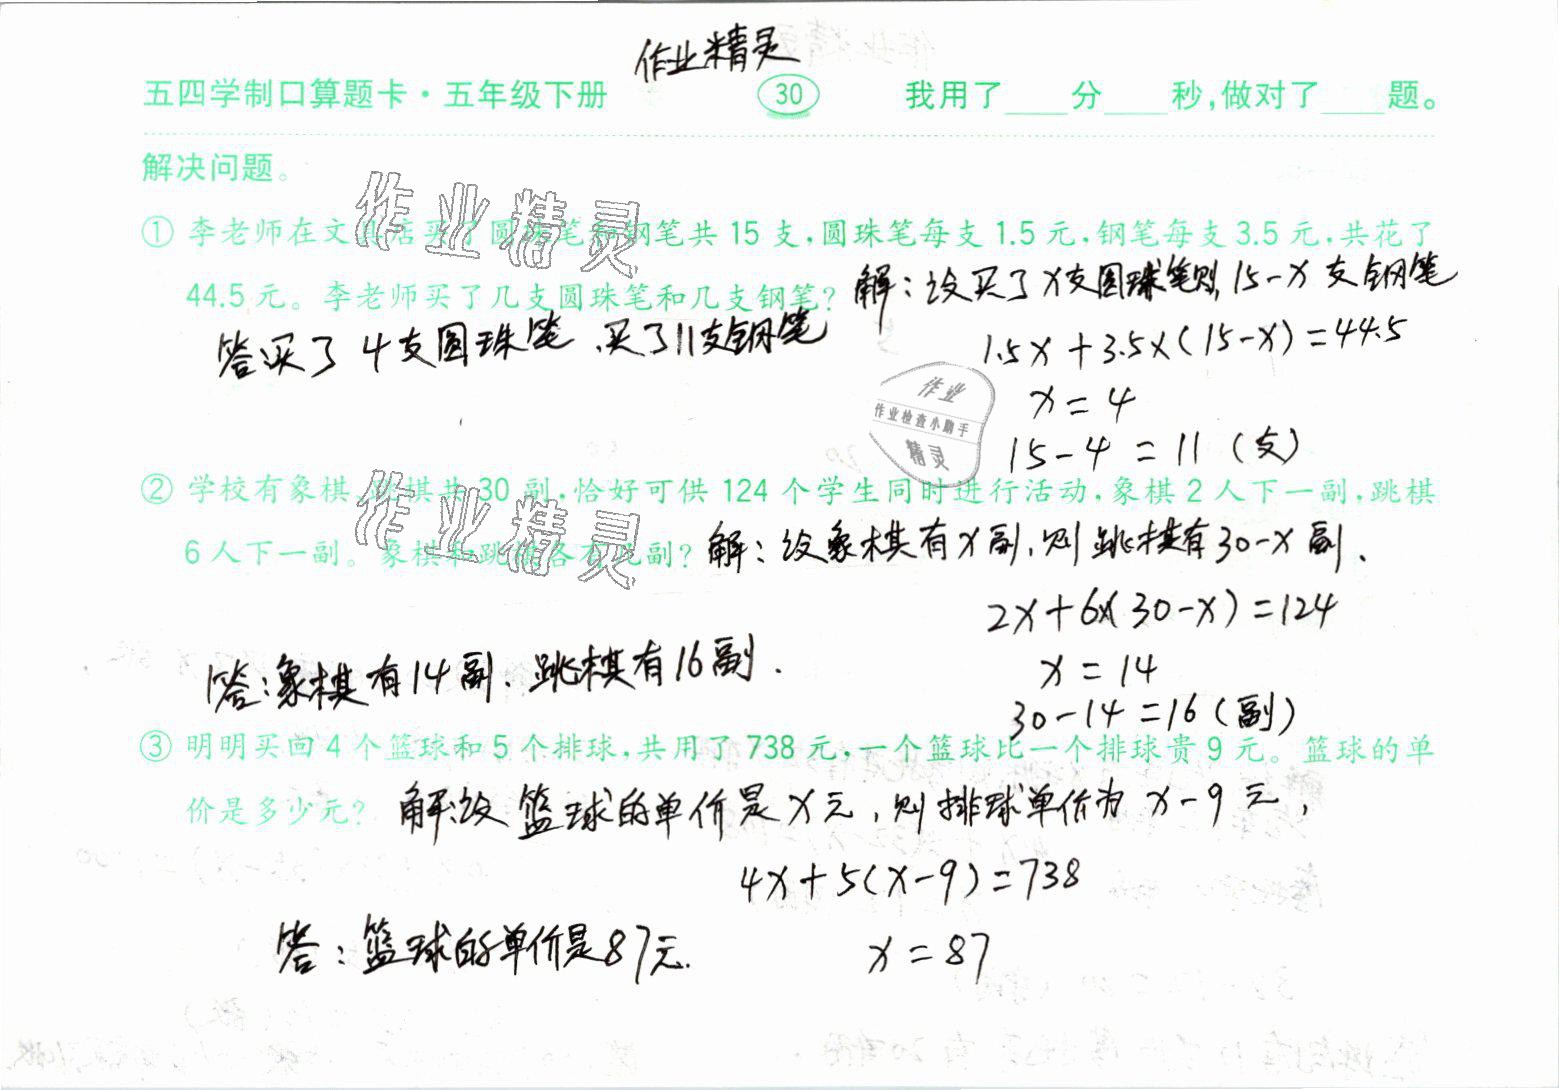 作业精灵
五四学制口算题卡·五年级下册 30 我用了____分____秒,做对了____题。
解决问题。
① 李老师在文具店买了圆珠笔和钢笔共 15 支,圆珠笔每支 1.5 元,钢笔每支 3.5 元,共花了
44.5 元。李老师买了几支圆珠笔和几支钢笔? 解:设买了x支圆珠笔则,15-x 支钢笔
答买了4支圆珠笔、买了11支钢笔
1.5x+3.5×(15-x)=44.5
x=4
15-4=11(支)
作业
作业检查小助手
精灵
作业精灵
② 学校有象棋、跳棋共 30 副,恰好可供 124 个学生同时进行活动,象棋 2 人下一副,跳棋
6 人下一副。象棋和跳棋各有几副? 解:设象棋有x副,则跳棋有30-x副.
作业精灵
2x+6×(30-x)=124
答:象棋有14副.跳棋有16副.
x=14
30-14=16(副)
③ 明明买回 4 个篮球和 5 个排球,共用了 738 元,一个篮球比一个排球贵 9 元。篮球的单
价是多少元? 解:设篮球的单价是x元,则排球单价为 x-9 元,
4x+5(x-9)=738
答:篮球的单价是87元.
x=87